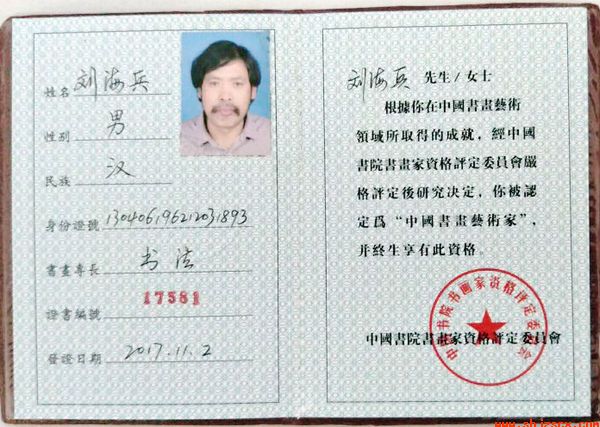 姓名 刘海兵
性别 男
民族 汉
身份證號 130406196212031893
書畫專長 书法
證書編號 17581
發證日期 2017.11.2
刘海兵 先生/女士
根據你在中國書畫藝術
領域所取得的成就，經中國
書院書畫家資格評定委員會嚴
格評定後研究决定，你被認
定爲“中國書畫藝術家”，
并終生享有此資格。
中国书院书画家资格评定委员会
中國書院書畫家資格評定委員會